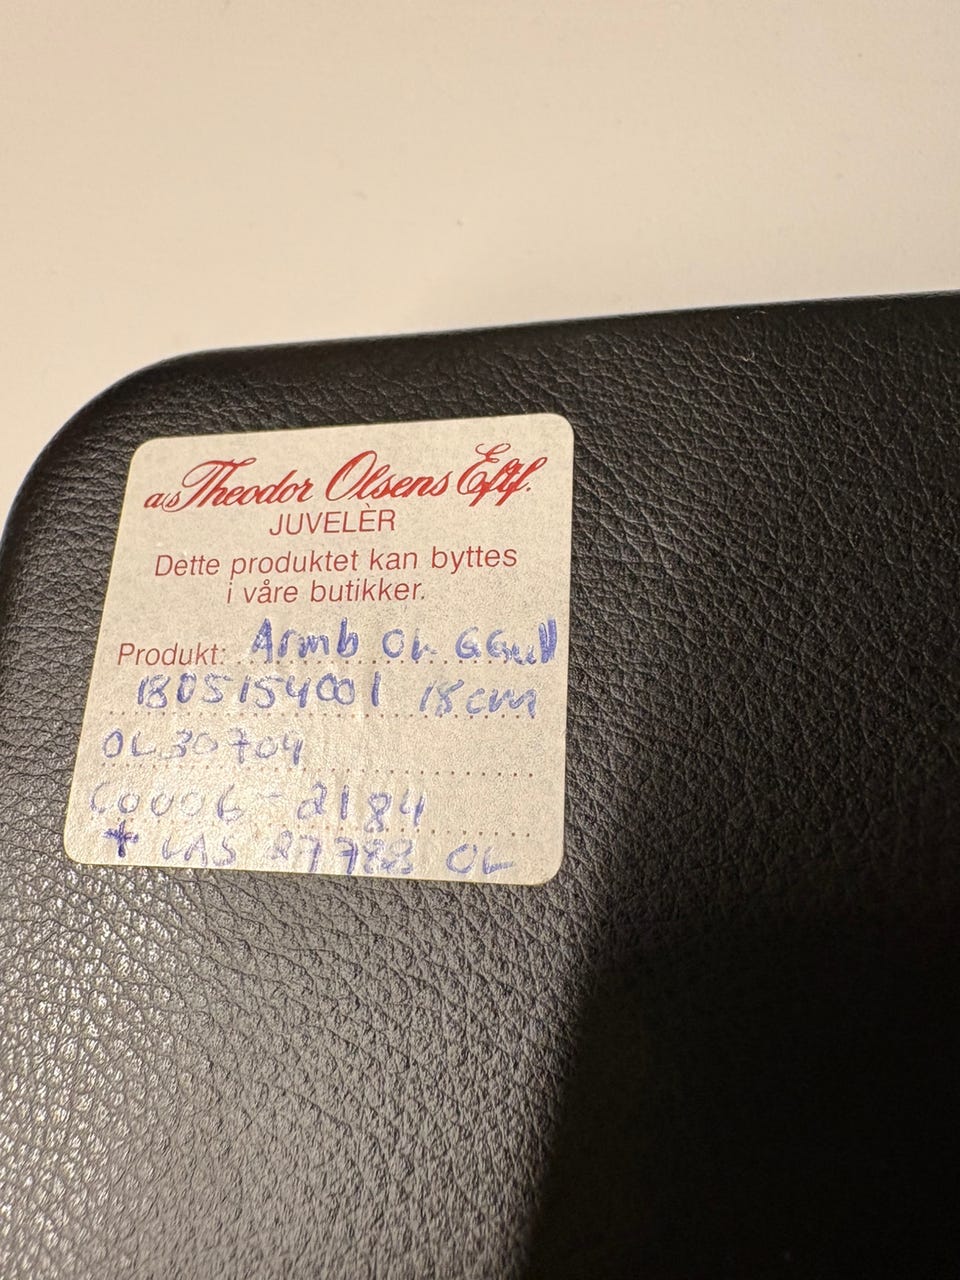 a/s Theodor Olsens Eftf.
JUVELÈR
Dette produktet kan byttes
i våre butikker.
Produkt: Armb OL GGull
1805154001 18cm
OL30704
C0006-2184
+ LAS 27788 OL